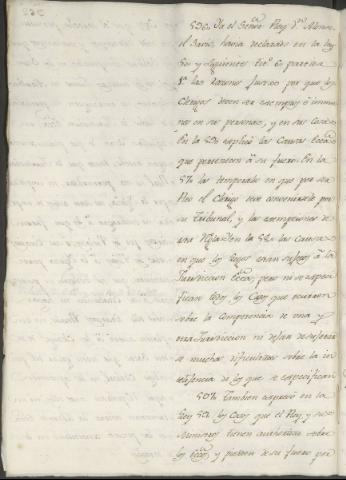 506. Ya el Señor Rey Dn. Alonso
el Savio havia declarado en la ley
50 y siguientes titº 6 partida
1ª las razones justas por que los
Clerigos deven ser exemptos ê inmu
nes en sus personas, y en sus cosas
En la 56 explicó las Causas Eccas
que pertenecen â su fuero. En la
57 las temporales en que por ser
Reo el Clerigo deve convenirsele por
su Tribunal, y las exempciones de
esta Regla. En la 58 las Causas
en que los legos están sujetos â la
Jurisdiccion Ecca, pero ni se especi
fican todos los Casos que ocurren
sobre la competencia de una y
otra Jurisdiccion ni dejan de ofrecerse
muchas dificultades sobre la in
teligencia de los que se especifican
507. Tambien expresó en la
ley 59 los Casos que el Rey y sus
Ministros tienen authoridad sobre
los Eccos y pierden de su fuero por